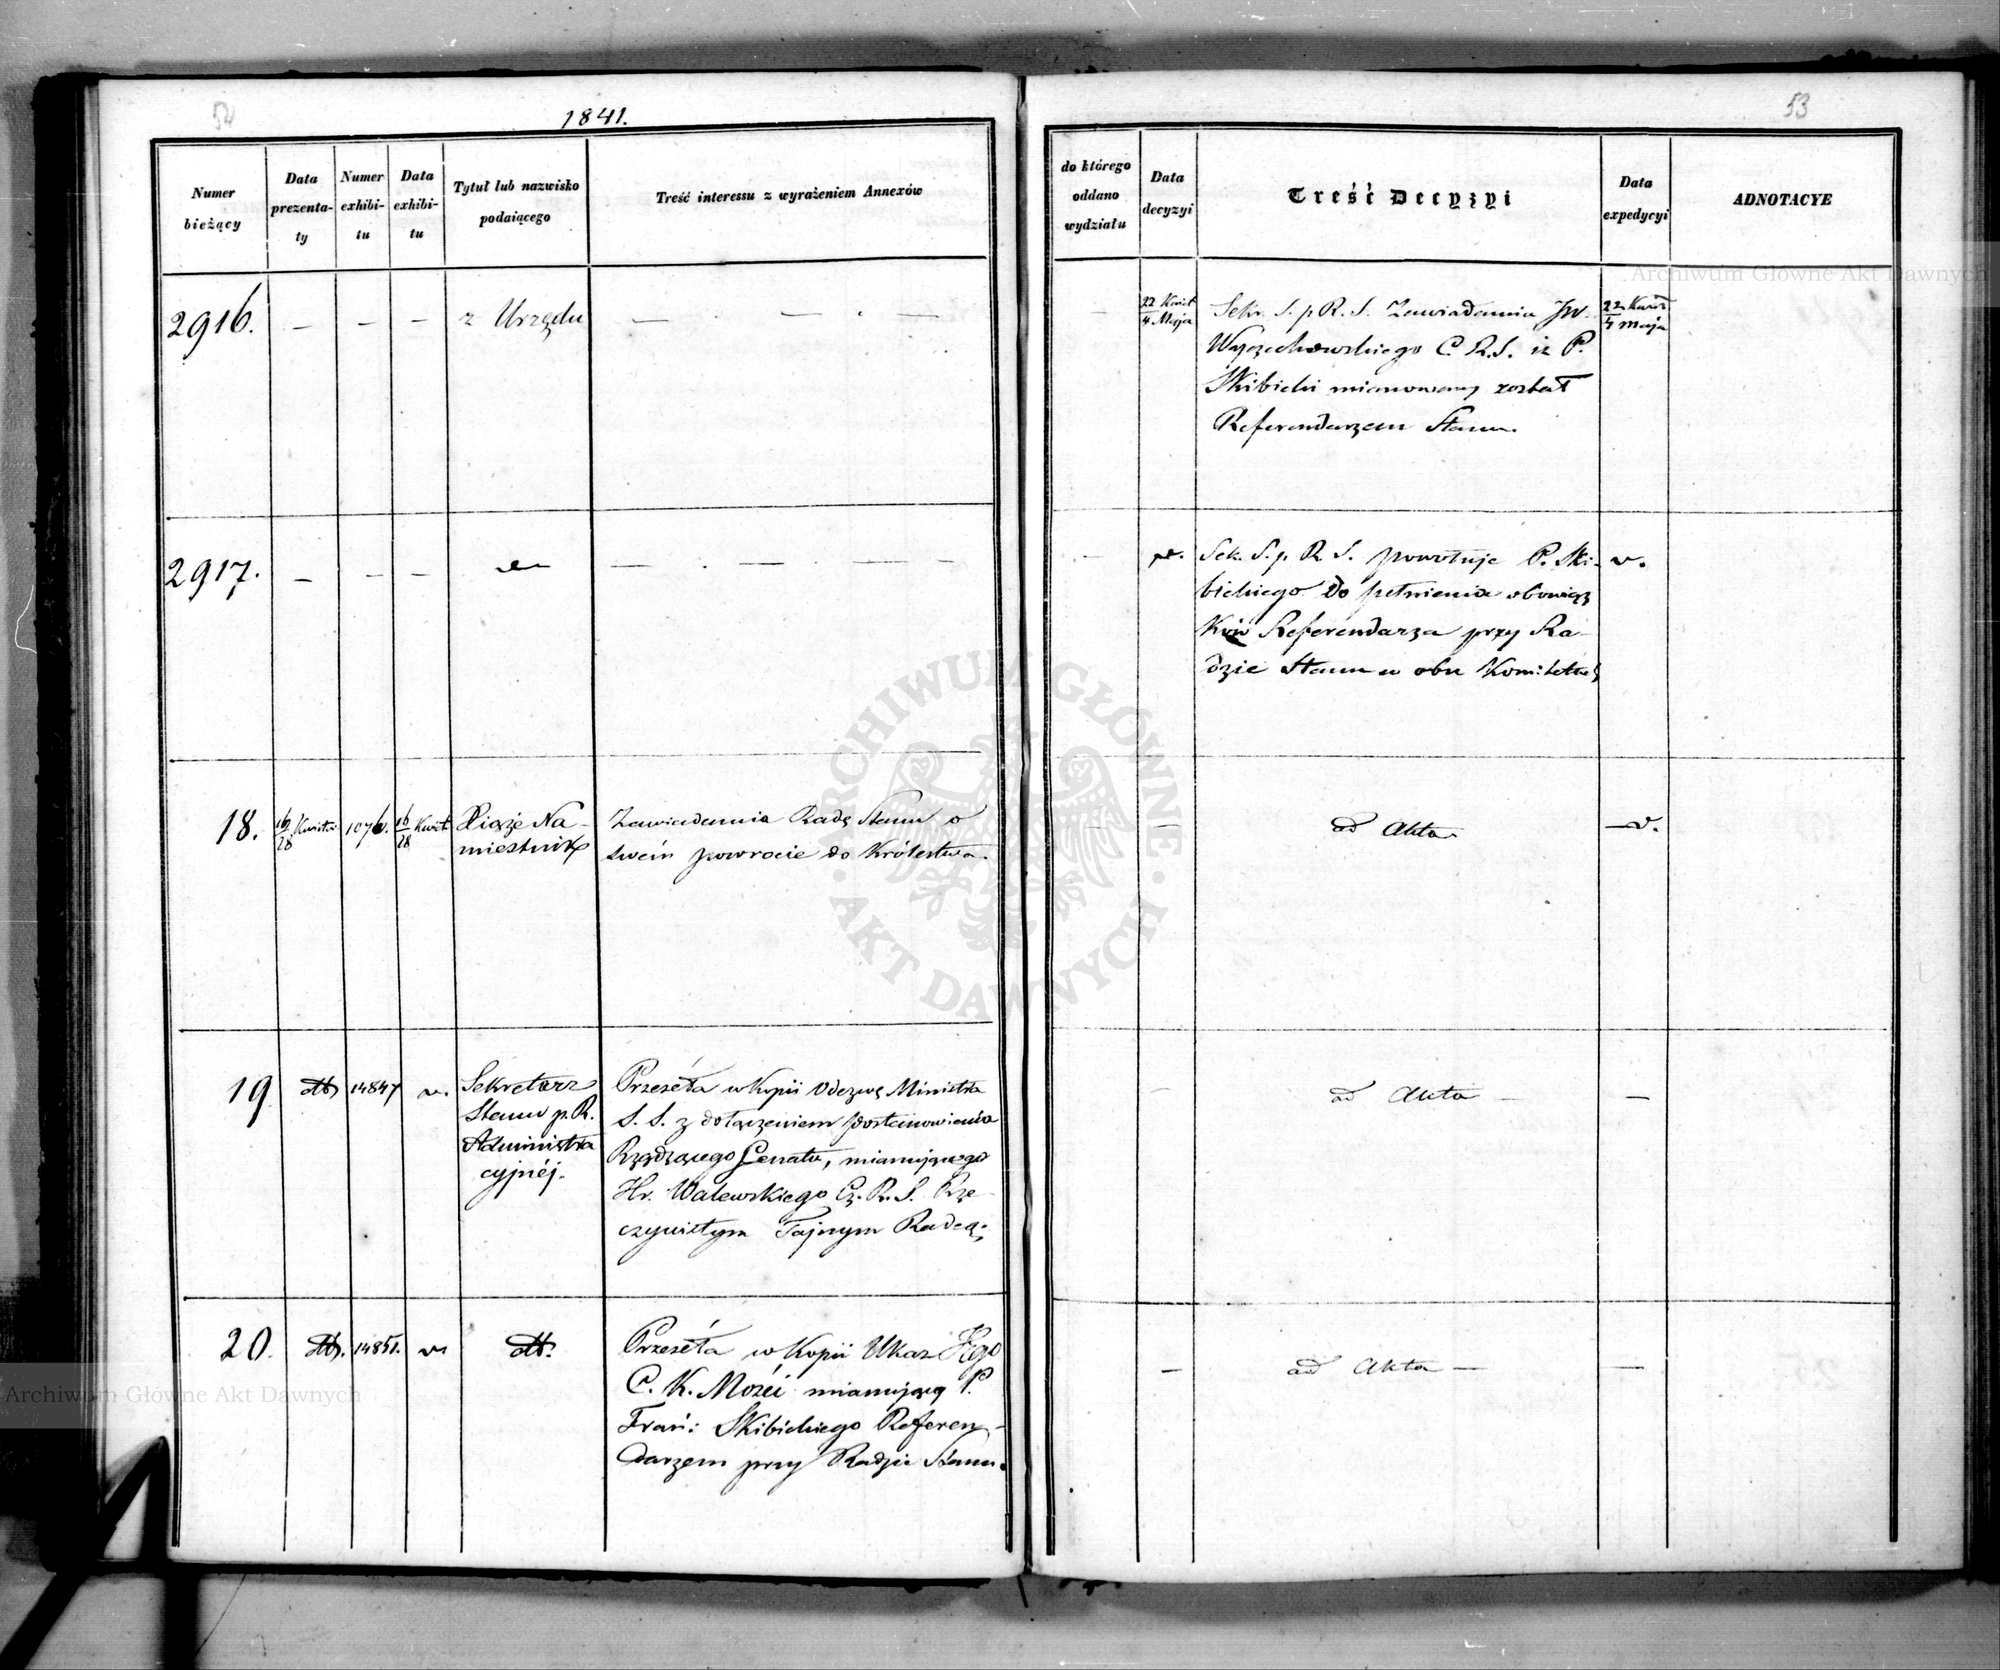 52
1841.
Numer bieżący
Data prezenta-ty
Numer exhibi-tu
Data exhibi-tu
Tytuł lub nazwisko podaiącego
Treść interessu z wyrażeniem Annexów
2916.
— — —
z Urzędu
2917.
— — —
18.
16/28 Kwiet
1076.
16/28 Kwiet
Xiąże Na-
miestnik
Zawiadamia Radę Stanu o
swéin powrocie do Królestwa.
19
14847
Sekretarz
Stanu p. R.
Administra
cyjnéj.
Przeséła w Kopii Odezwę Ministra
S. S. z dołączeniem postanowienia
Rządzącego Senatu, mianującego
Hr. Walewskiego Cz. R. S. Rze-
czywistym Tajnym Radcą.
20.
14851.
Przeséła w Kopii Ukaz Jego
C. K. Mości mianujący P.
Fran: Skibickiego Referen-
darzem przy Radzie Stanu.
53
do którego oddano wydziału
Data decyzyi
Treść Decyzyi
Data expedycyi
ADNOTACYE
22 Kwiet
4 Maja
Sekr. S. p R. S. Zawiadamia Jw.
Wyczechowskiego C. R. S. iż P.
Skibicki mianowany został
Referendarzem Stanu.
22 Kwiet
4 Maja
Sek. S. p. R. S. powołuje P. Ski-
bickiego do pełnienia obowiąz
ków Referendarza przy Ra-
dzie Stanu w obu Komitetach
ad Akta
ad Akta —
ad Akta —
Archiwum Główne Akt Dawnych
ARCHIWUM GŁÓWNE · AKT DAWNYCH ·
Archiwum Główne Akt Dawnych